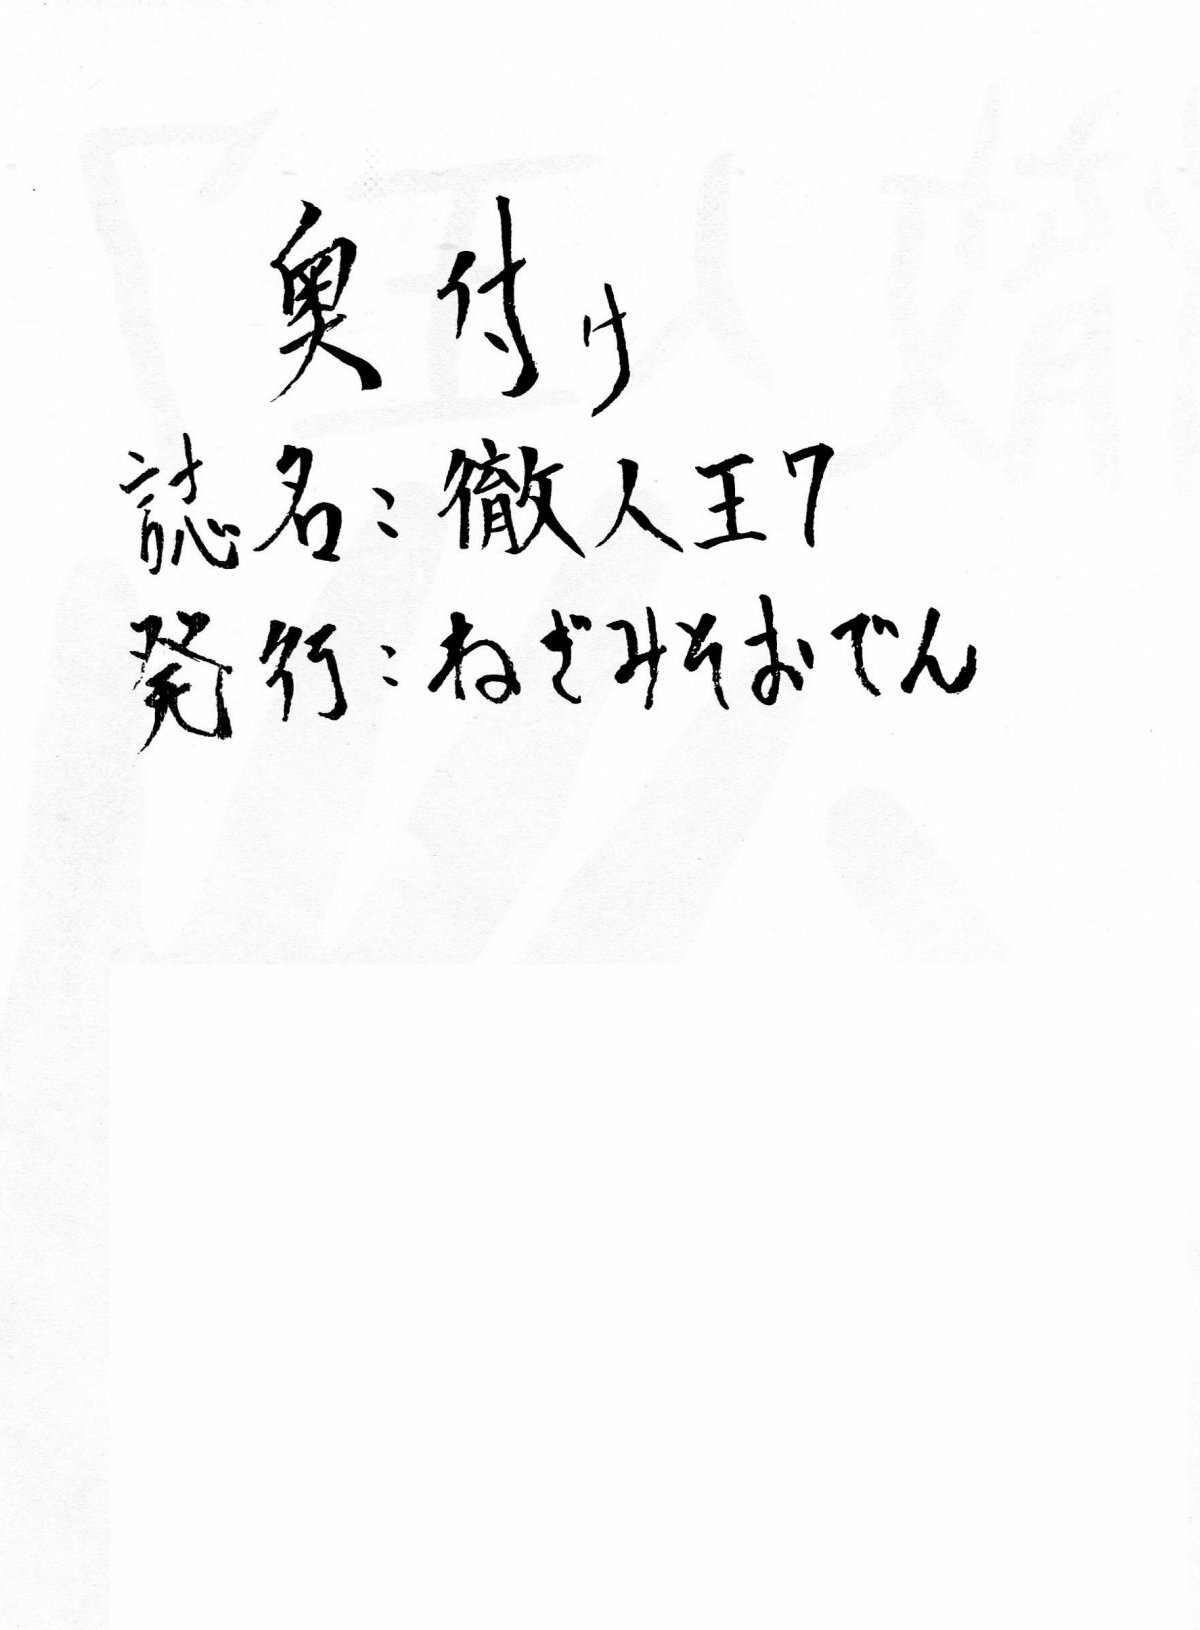 奥付け
誌名：徹人王7
発行：ねぎみそおでん